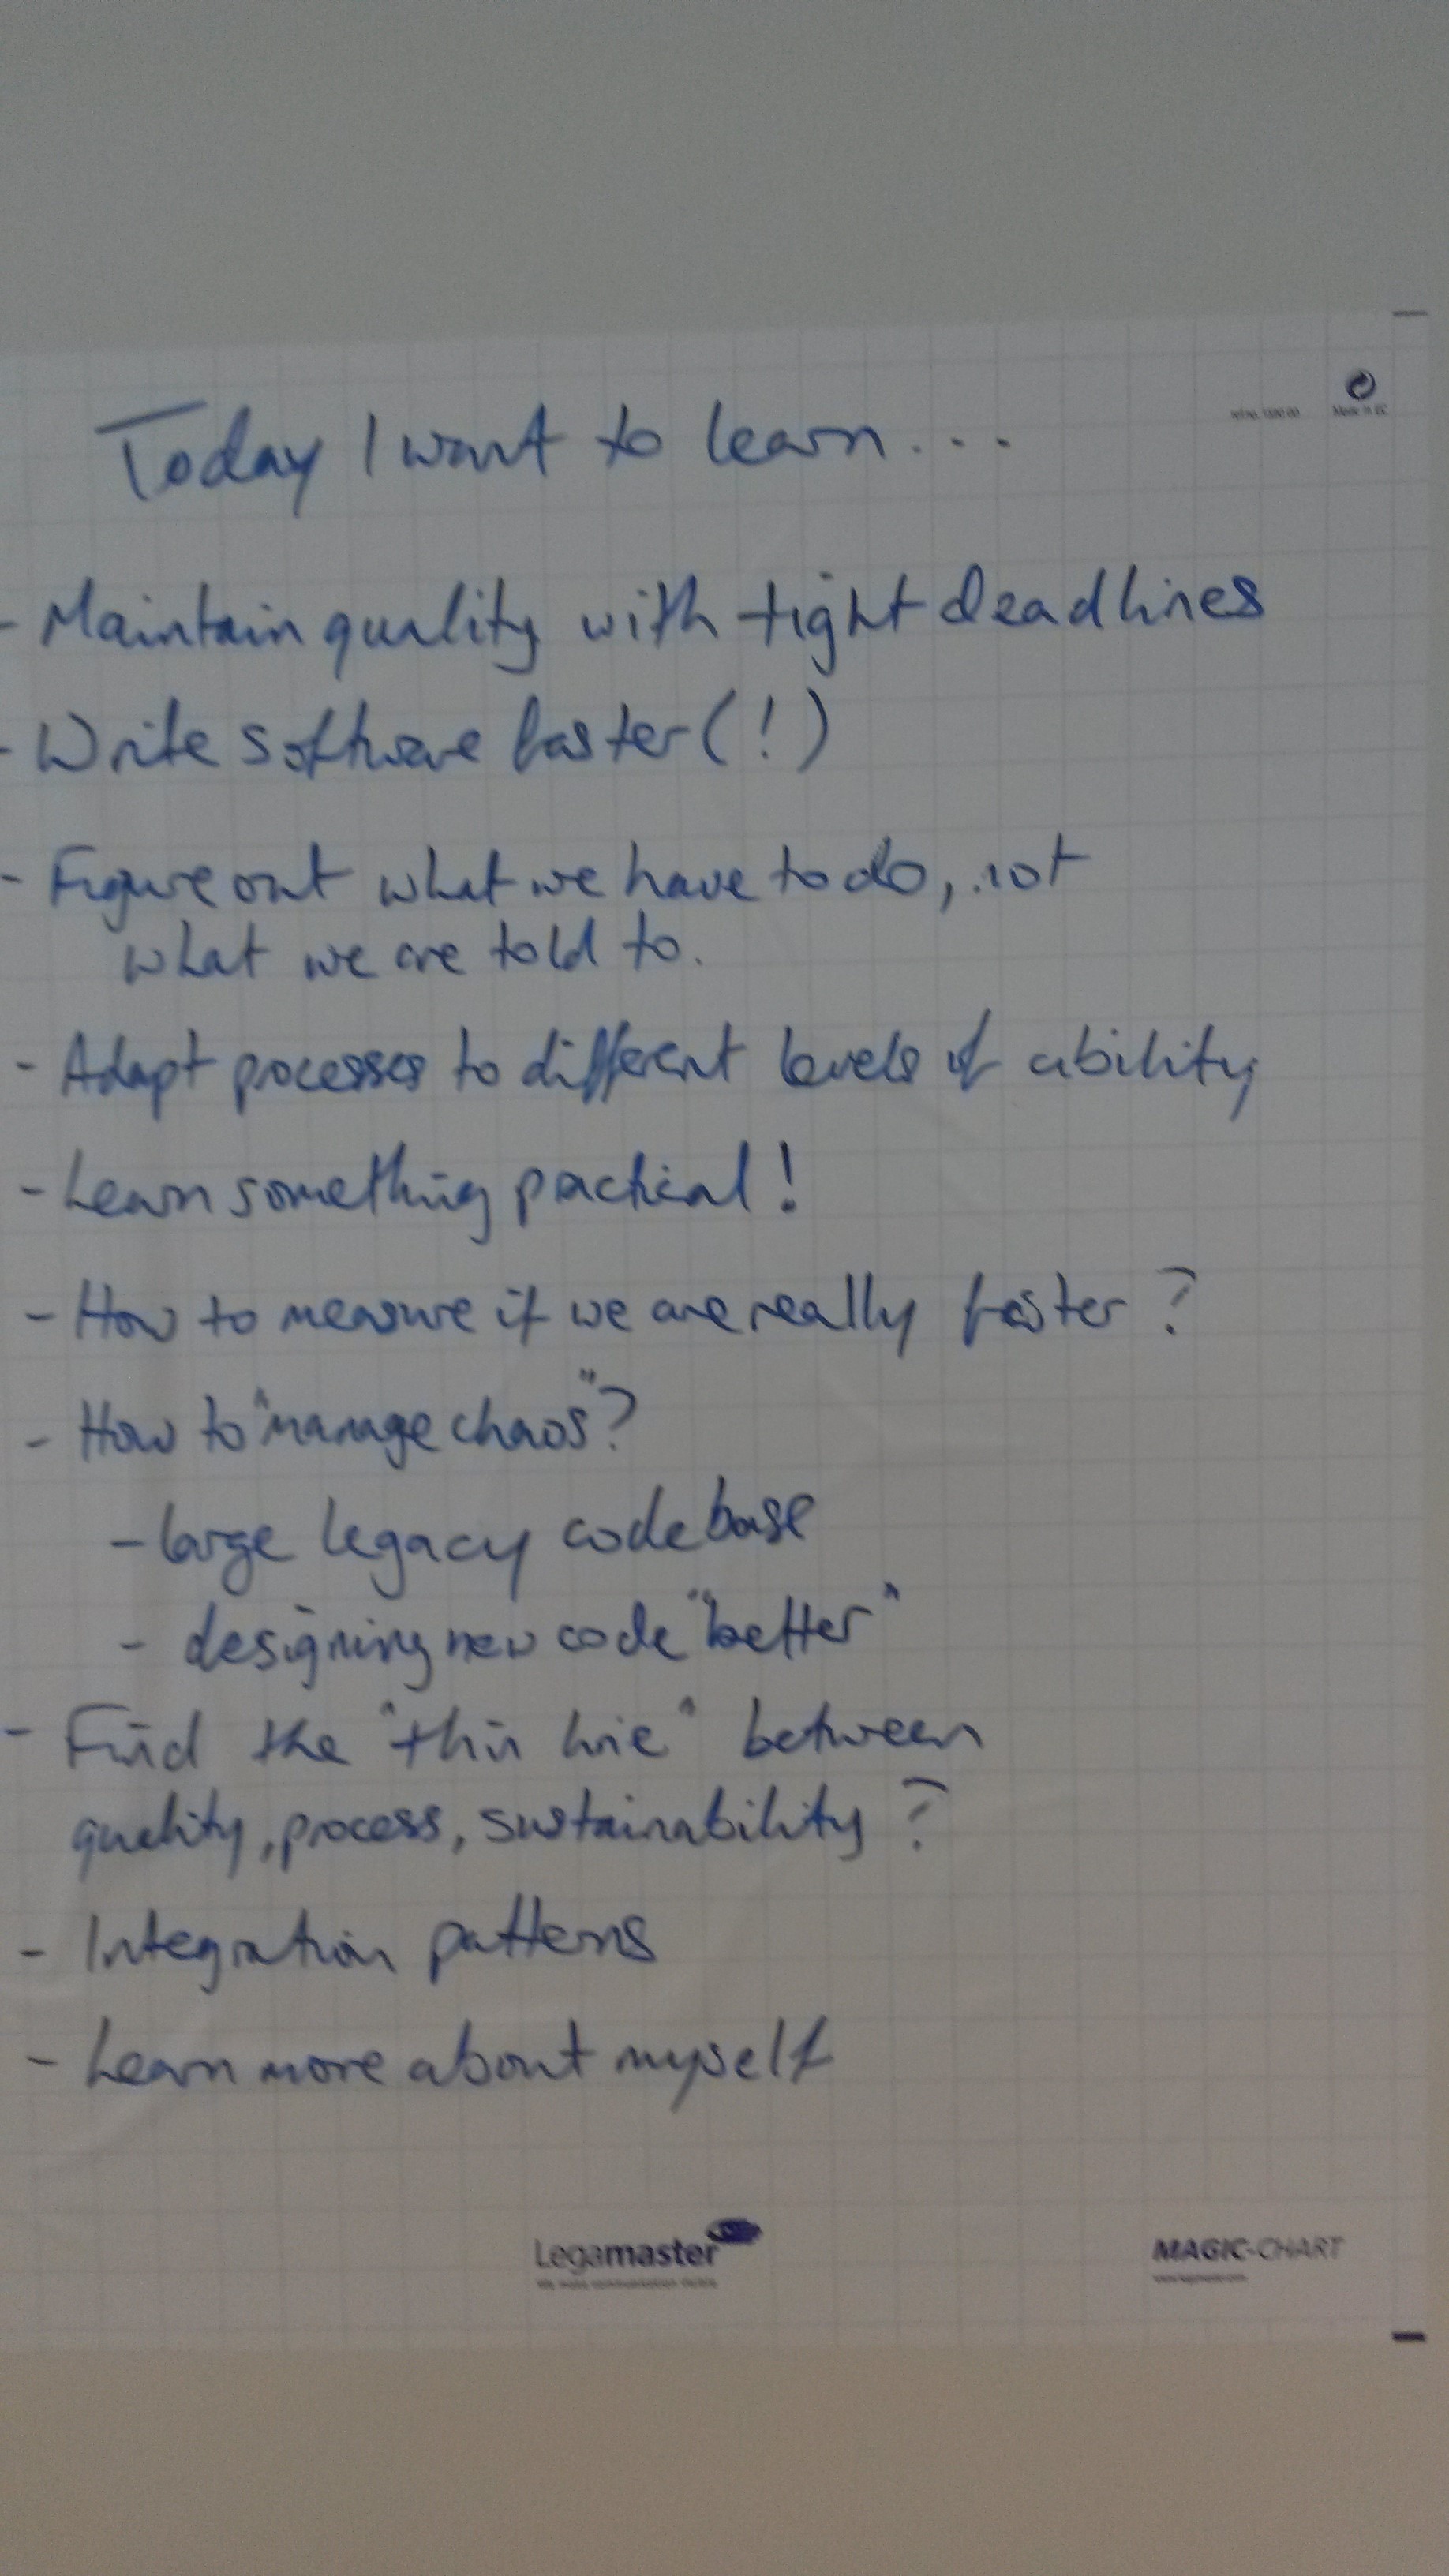 Made in EC
Today I want to learn....
- Maintain quality with tight deadlines
- Write software faster (!)
- Figure out what we have to do, not
what we are told to.
- Adapt processes to different levels of ability
- Learn something practical!
- How to measure if we are really faster?
- How to "manage chaos"?
- large legacy codebase
- designing new code "better"
- Find the "thin line" between
quality, process, sustainability?
- Integration patterns
- Learn more about myself
Legamaster
MAGIC-CHART